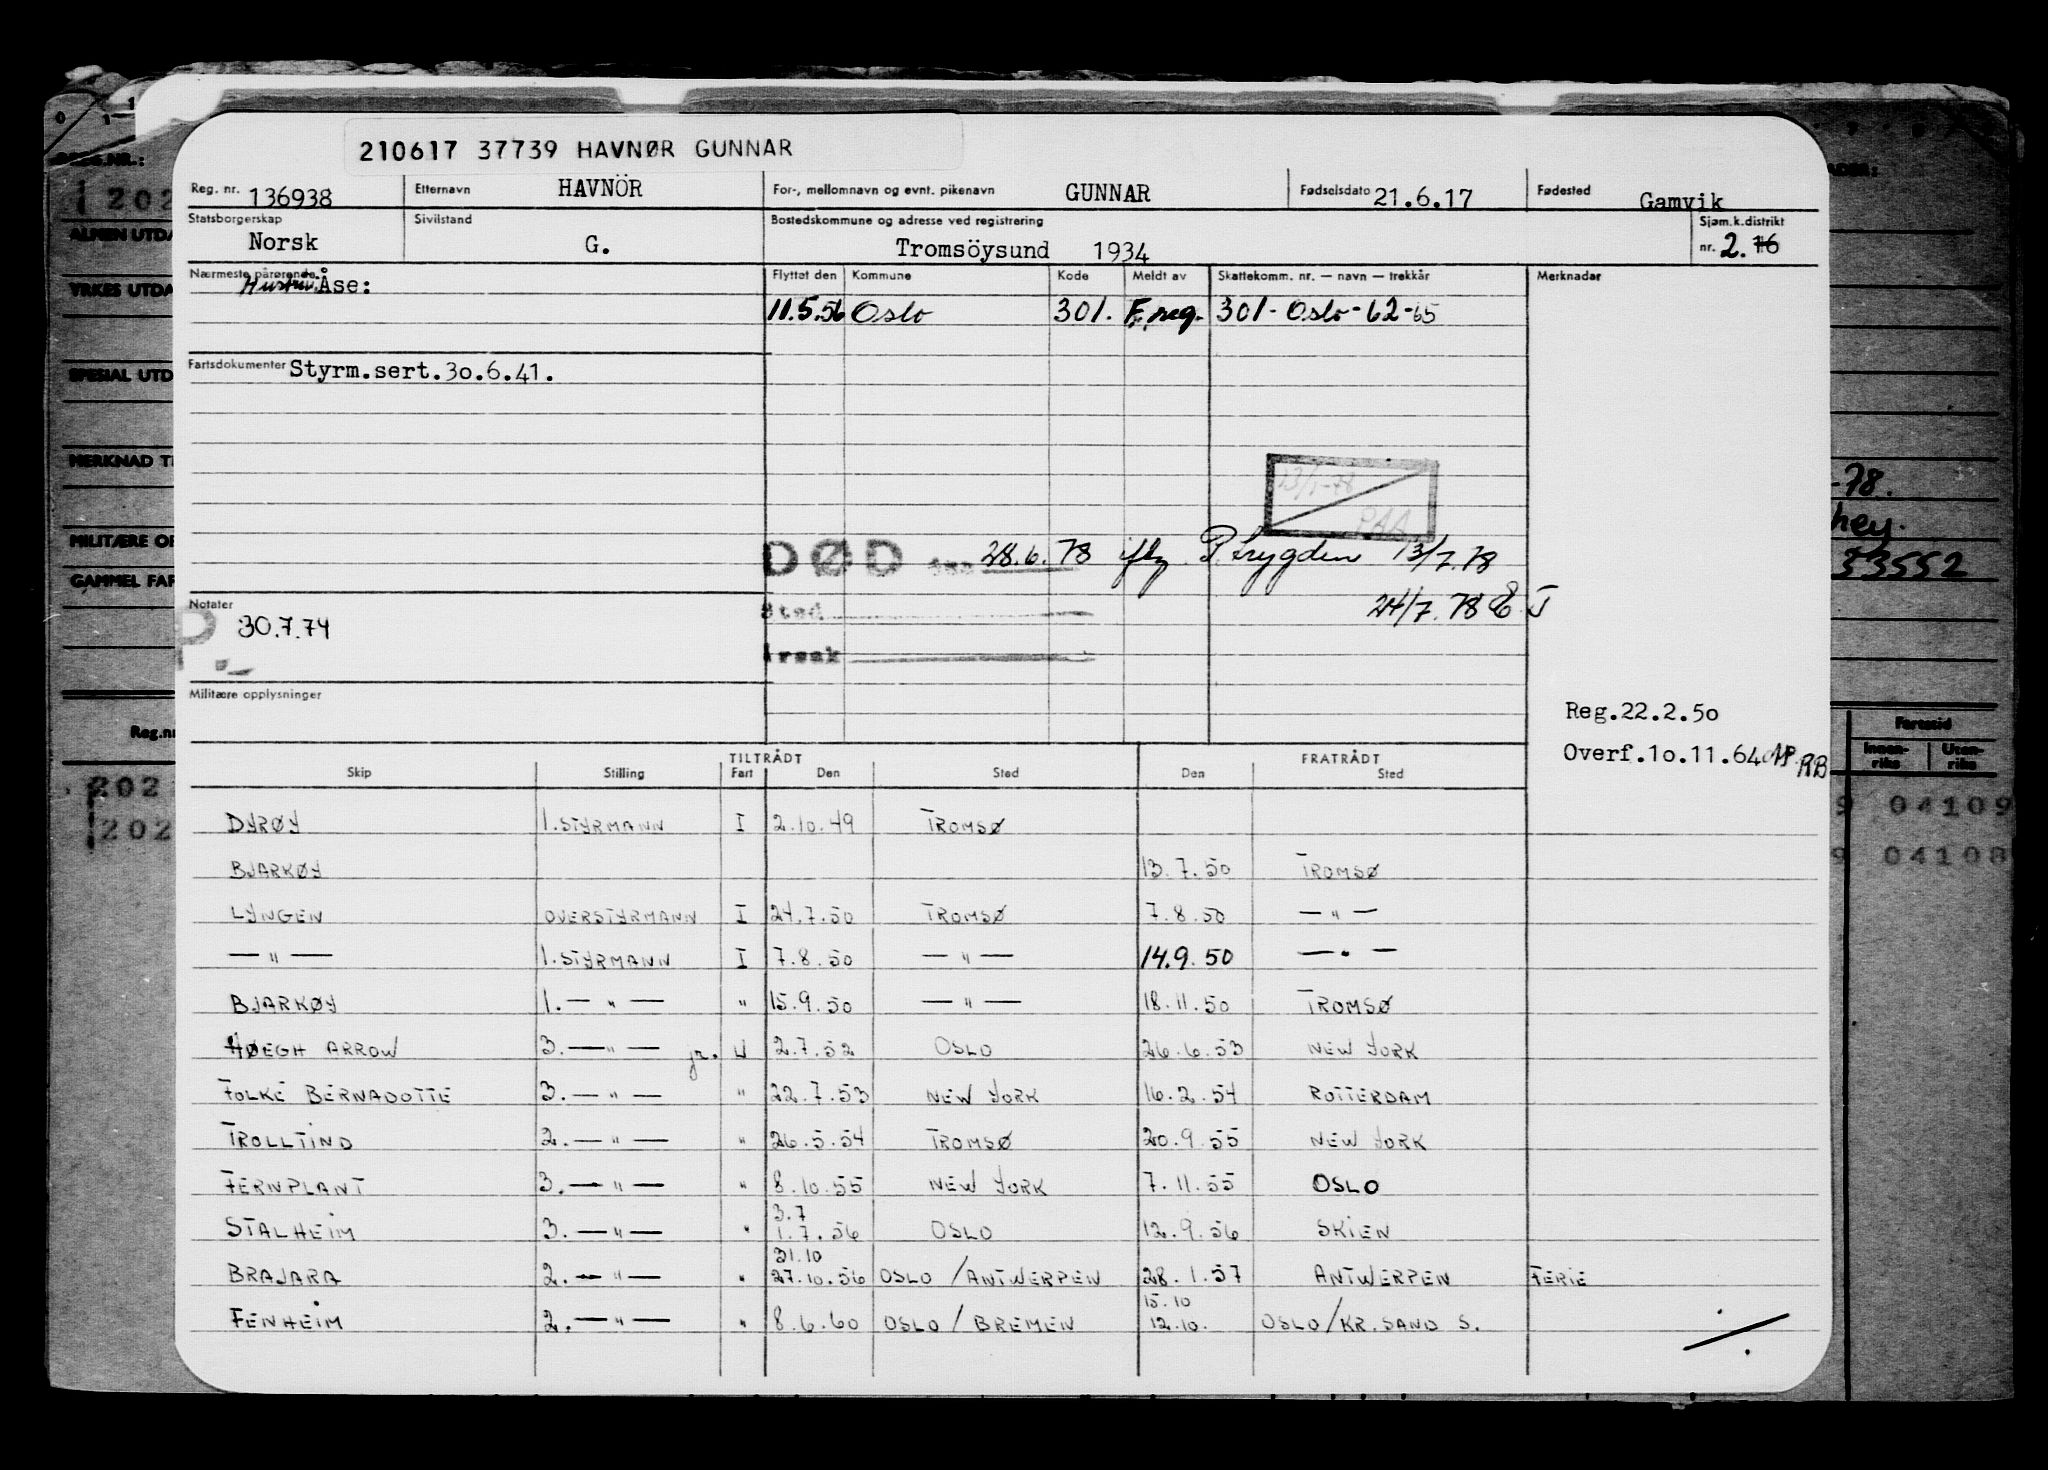 210617 37739 HAVNØR GUNNAR
Reg. nr. 136938 Etternavn HAVNÖR For-, mellomnavn og evnt. pikenavn GUNNAR Fødselsdato 21.6.17 Fødested Gamvik
Statsborgerskap Norsk Sivilstand G. Bostedskommune og adresse ved registrering Tromsöysund 1934 Sjøm.k.distrikt nr. 2. 16
Nærmeste pårørende Hustru: Åse: Flyttet den Kommune Kode Meldt av Skattekomm. nr. — navn — trekkår Merknader
11.5.56 Oslo 301. F.reg. 301 - Oslo - 62 - 65
Fartsdokumenter Styrm.sert.30.6.41.
13/7-78
PAA
DØD den 28.6.78 iflg. P.trygden 13/7.78
Sted 24/7.78
Årsak
Notater
30.7.74
Militære opplysninger
Reg.22.2.50
Overf.10.11.64 RB
TILTRÅDT FRATRÅDT
Skip Stilling Fart Den Sted Den Sted
DYRØY 1. STYRMANN I 2.10.49 TROMSØ
BJARKØY 13.7.50 TROMSØ
LYNGEN OVERSTYRMANN I 24.7.50 TROMSØ 7.8.50 — " —
— " — 1. STYRMANN I 7.8.50 — " — 14.9.50 — " —
BJARKØY 1. — " — " 15.9.50 — " — 18.11.50 TROMSØ
HØEGH ARROW 3. — " — jr. U 2.7.52 OSLO 26.6.53 NEW YORK
FOLKE BERNADOTTE 3. — " — " 22.7.53 NEW YORK 16.2.54 ROTTERDAM
TROLLTIND 2. — " — " 26.5.54 TROMSØ 20.9.55 NEW YORK
FERNPLANT 3. — " — " 8.10.55 NEW YORK 7.11.55 OSLO
3.7
STALHEIM 3. — " — " 1.7.56 OSLO 12.9.56 SKIEN
31.10
BRAJARA 2. — " — " 27.10.56 OSLO / ANTWERPEN 28.1.57 ANTWERPEN FERIE
15.10
FENHEIM 2. — " — " 8.6.60 OSLO / BREMEN 12.10. OSLO / KR.SAND S.
REG.NR.:
ALMEN UTDA
YRKES UTDA
SPESIAL UTD
MERKNAD T
MILITÆRE OP
GAMMEL FAR
Reg.nr
-78.
33552
Fartstid
Innen-riks Uten-riks
9 04109
9 04108